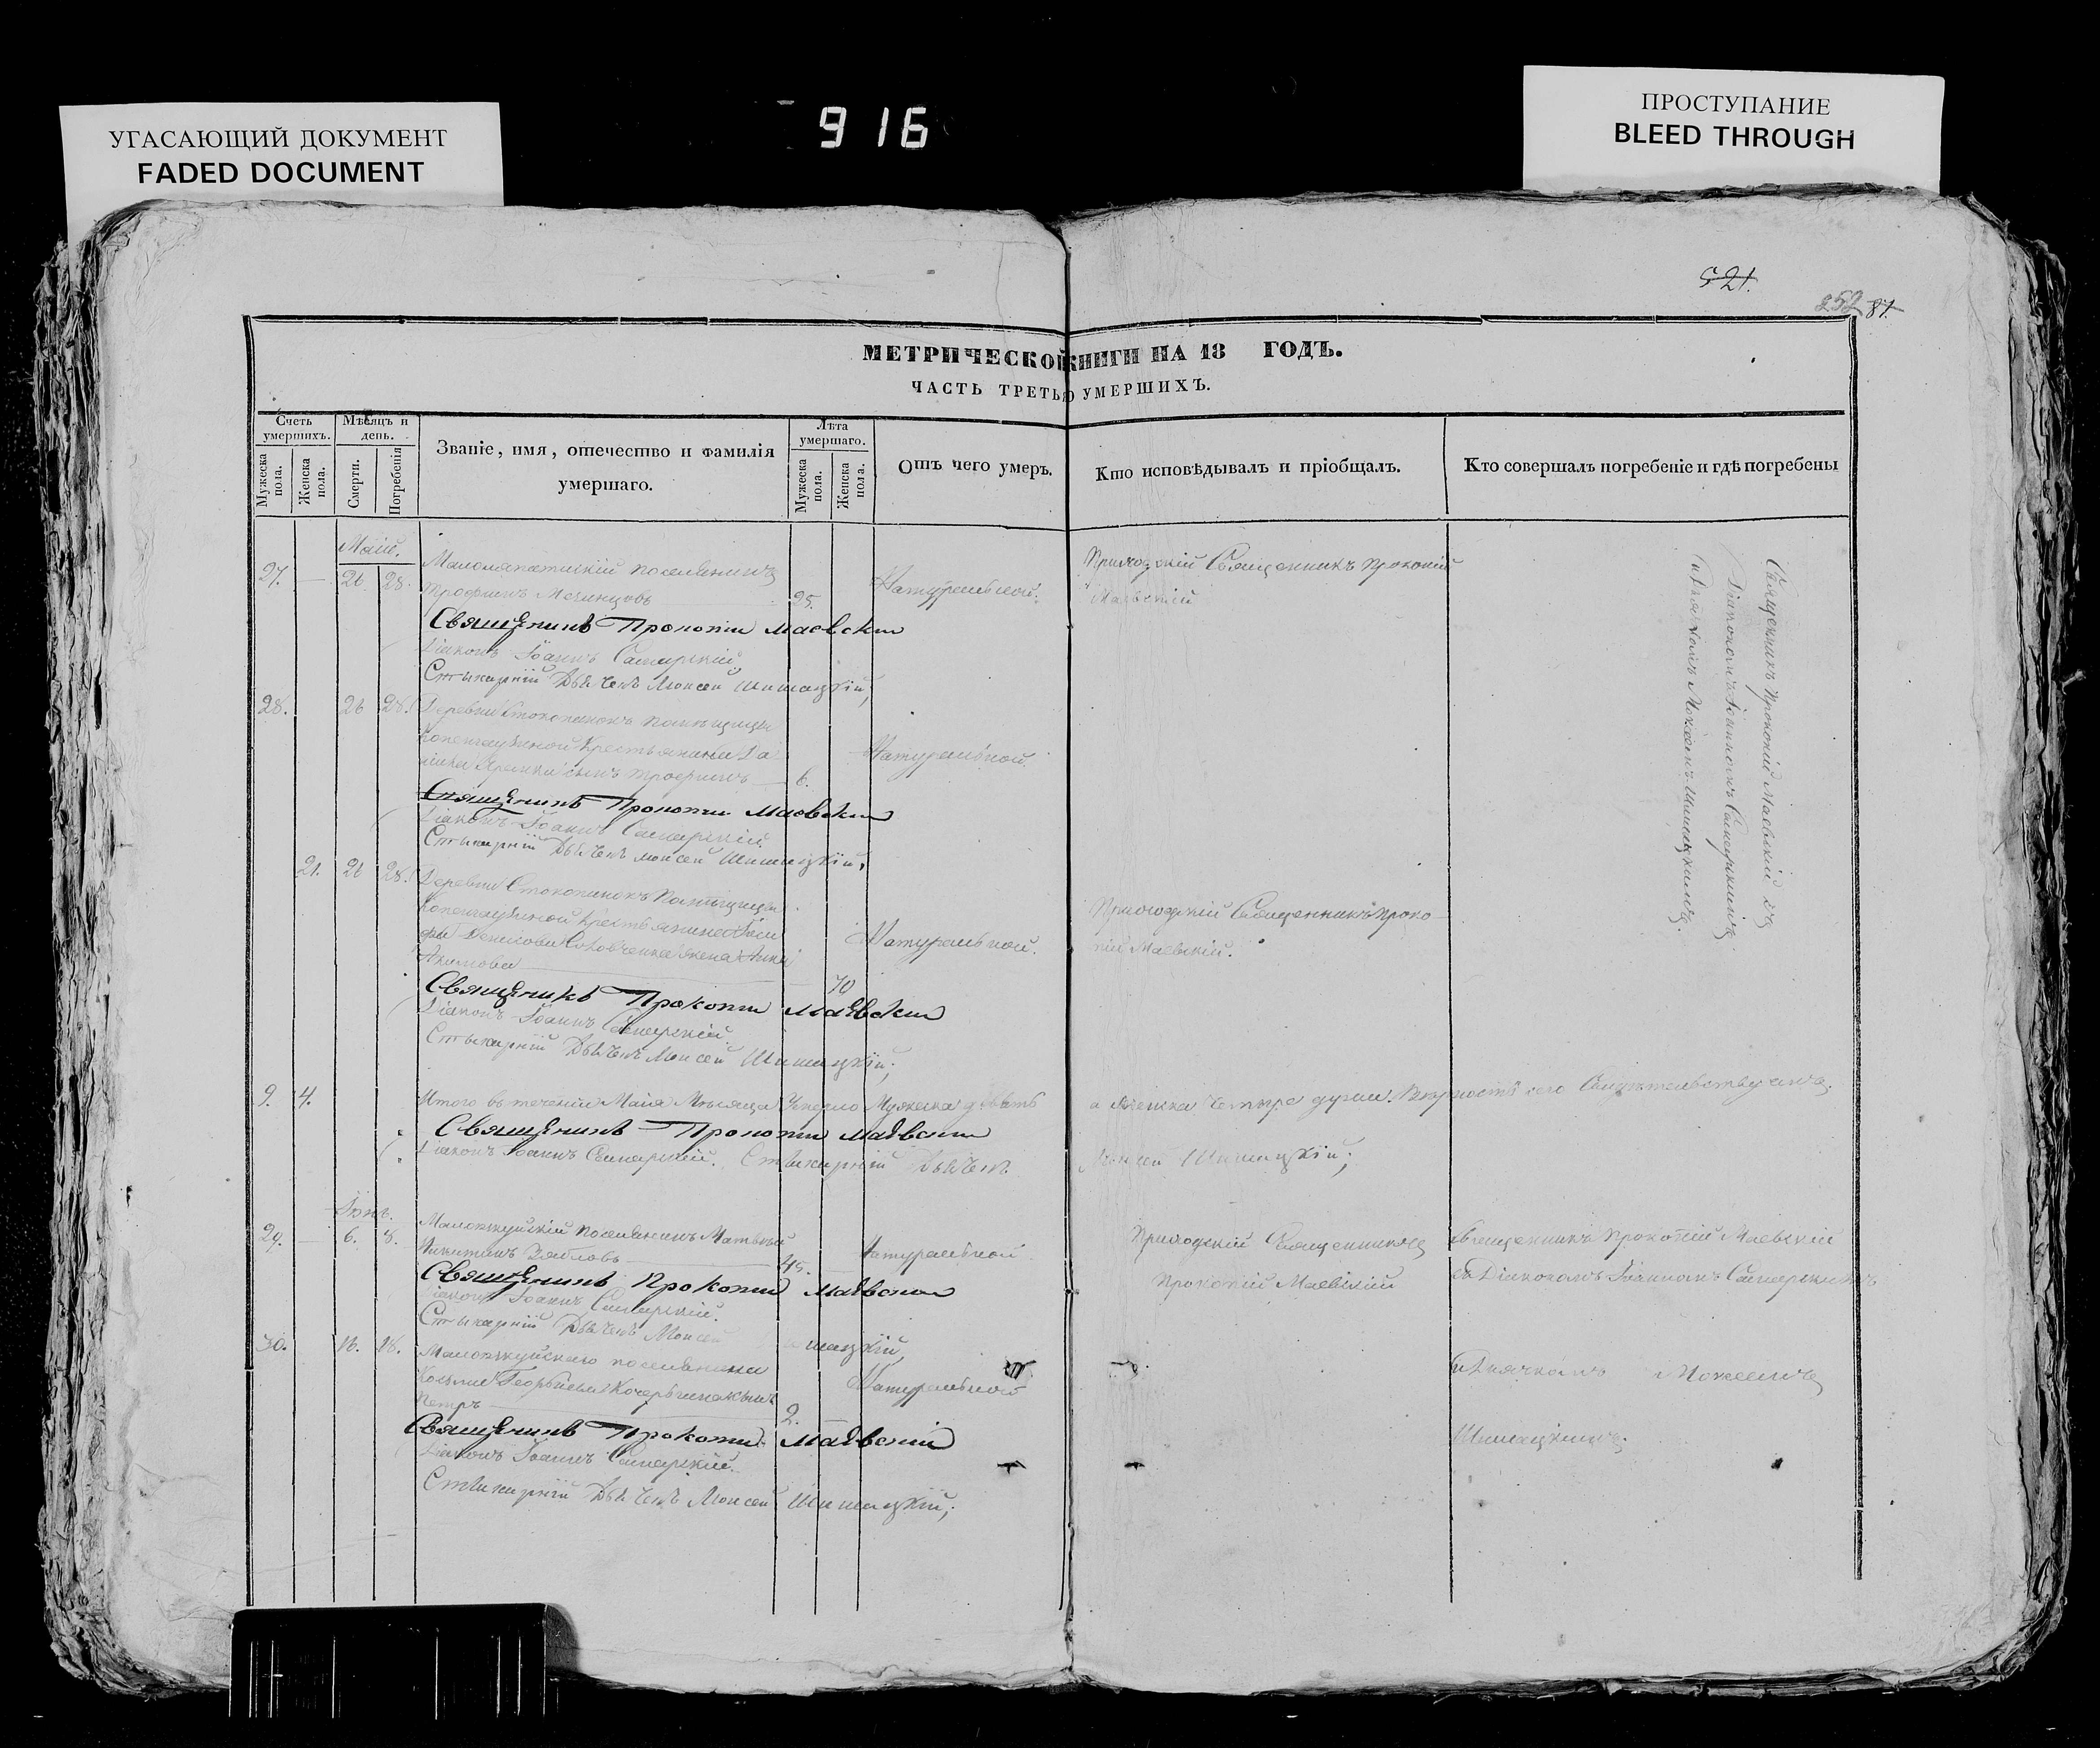 УГАСАЮЩИЙ ДОКУМЕНТ
FADED DOCUMENT
916
ПРОСТУПАНИЕ
BLEED THROUGH
521.
252 87.
МЕТРИЧЕСКОЙ КНИГИ НА 18 ГОДЪ.
ЧАСТЬ ТРЕТЬЯ УМЕРШИХЪ.
Счетъ умершихъ.
Мужеска пола.
Женска пола.
Мѣсяцъ и день.
Смерти.
Погребенія
Званіе, имя, отечество и фамилія
умершаго.
Лѣта умершаго.
Мужеска пола.
Женска пола.
Отъ чего умеръ.
Кто исповѣдывалъ и пріобщалъ.
Кто совершалъ погребеніе и гдѣ погребены
Маій.
27. 26. 28. поселянинъ
Трофимъ 25. Натуральной.
Приходскій Священникъ Прокопій
Маевскій
Священникъ Прокопій Маевскій съ
Діакономъ Іоанномъ Самарскимъ
и Дьячкомъ Моисеемъ Шишацкимъ
Священникъ Прокопий Маевский
Діаконъ Іоаннъ Самарскій
Стихарній Дьячекъ Моисей Шишацкій;
28. 26 28. Деревни помѣщицы
Крестьянина Да
сынъ Трофимъ 6. Натуральной.
Священникъ Прокопий Маевский
Діаконъ Іоаннъ Самарскій.
Стихарній Дьячекъ Моисей Шишацкій;
21. 26 28. Деревни помѣщицы
жена Анна
Акимова 70 Натуральной.
Приходскій Священникъ Проко
пій Маевскій.
Священникъ Прокопий Маевский
Діаконъ Іоаннъ Самарскій
Стихарній Дьячекъ Моисей Шишацкій;
9. 4. Итого въ теченіи Маія Мѣсяца Умерло Мужеска девять
а Женска четыре души. Вѣрность сего Свидѣтельствуемъ.
Священникъ Прокопий Маевский
Діаконъ Іоаннъ Самарскій. Стихарній Дьячекъ
Моисей Шишацкій;
Іюнь.
29. 6. 8. поселянинъ Матвѣй
Никитинъ 45. Натуральной
Приходскій Священникъ
Прокопій Маевскій
Священникъ Прокопій Маевскій
съ Діакономъ Іоанномъ Самарскимъ
Священникъ Прокопий Маевский
Діаконъ Іоаннъ Самарскій.
Стихарній Дьячекъ Моисей Шишацкій
30. 16. 18. поселянина
Георгіева
Петръ 2. Натуральной
и Дьячкомъ Моисеемъ
Шишацкимъ.
Священникъ Прокопий Маевский
Діаконъ Іоаннъ Самарскій.
Стихарній Дьячекъ Моисей Шишацкій;